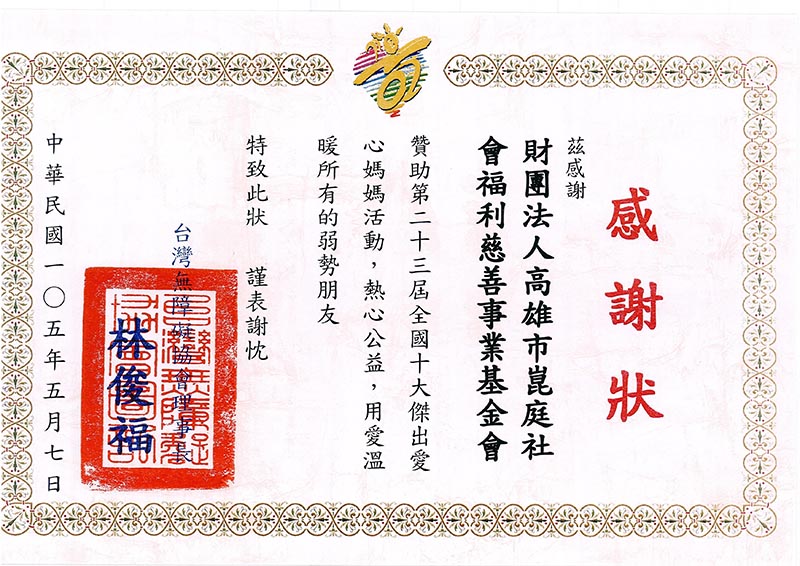 感謝狀
茲感謝
財團法人高雄市崑庭社
會福利慈善事業基金會
贊助第二十三屆全國十大傑出愛
心媽媽活動，熱心公益，用愛溫
暖所有的弱勢朋友
特致此狀　謹表謝忱
台灣無障礙協會理事長
林俊福
中華民國一〇五年五月七日